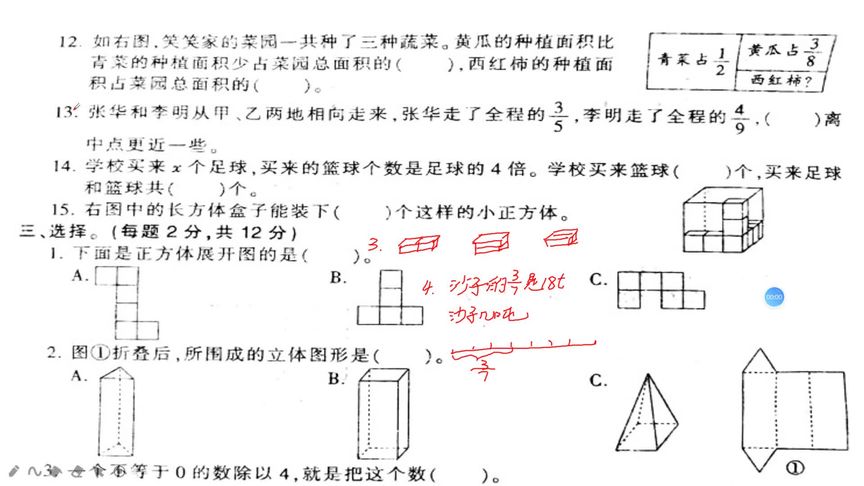 12. 如右图,笑笑家的菜园一共种了三种蔬菜。黄瓜的种植面积比
青菜的种植面积少占菜园总面积的( ),西红柿的种植面
积占菜园总面积的( )。
青菜占1/2
黄瓜占3/8
西红柿?
13. 张华和李明从甲、乙两地相向走来,张华走了全程的3/5,李明走了全程的4/9,( )离
中点更近一些。
14. 学校买来x个足球,买来的篮球个数是足球的4倍。学校买来篮球( )个,买来足球
和篮球共( )个。
15. 右图中的长方体盒子能装下( )个这样的小正方体。
三、选择。(每题2分,共12分)
1. 下面是正方体展开图的是( )。
3.
A.
B.
4. 沙子的3/7是18t
沙子几吨
C.
00:00
2. 图①折叠后,所围成的立体图形是( )。
3/7
A.
B.
C.
①
3. 一个不等于0的数除以4,就是把这个数( )。